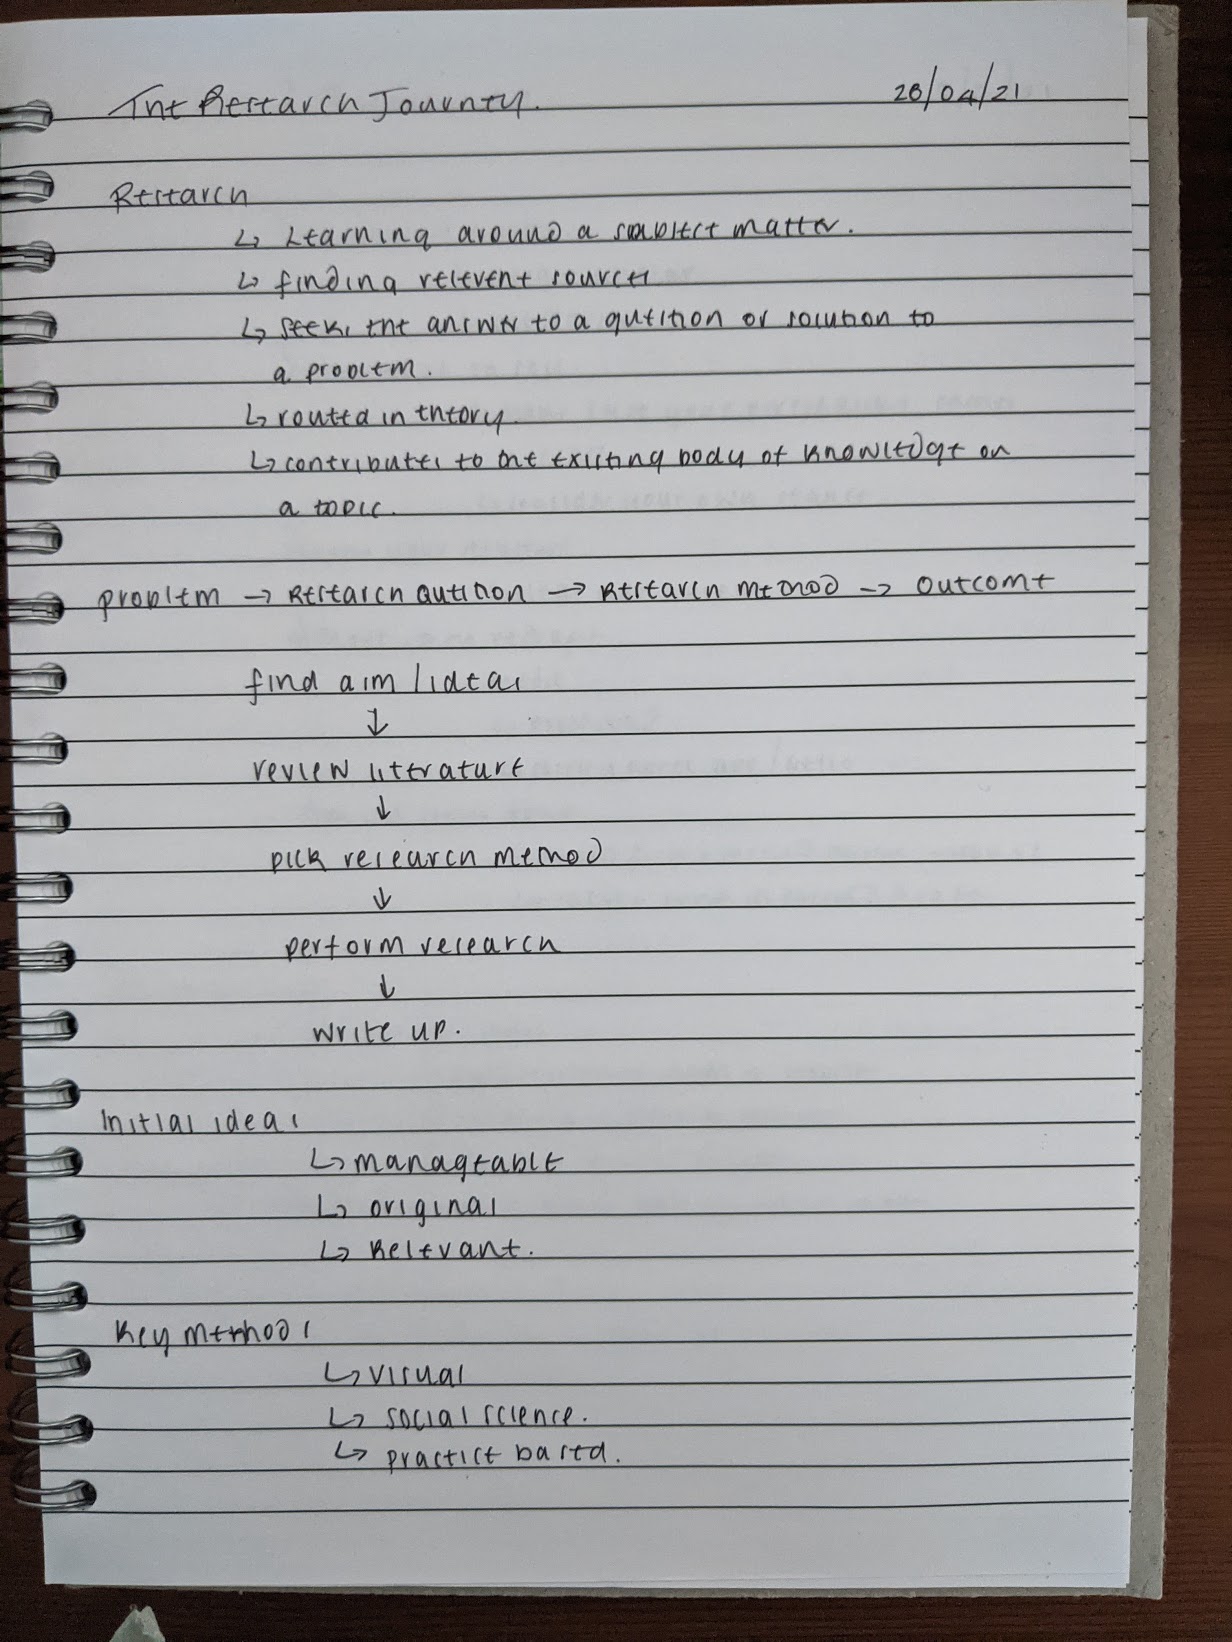 The Research Journey. 28/04/21
Research
↳ Learning around a subject matter.
↳ finding relevent sources
↳ seeks the answer to a question or solution to
a problem.
↳ routed in theory.
↳ contributes to the existing body of knowledge on
a topic.
problem → Research question → Research method → outcome
find aim / ideas
↓
review literature
↓
pick research method
↓
perform research
↓
write up.
Initial ideas
↳ manageable
↳ original
↳ Relevant.
Key methods
↳ visual
↳ social science.
↳ practice based.